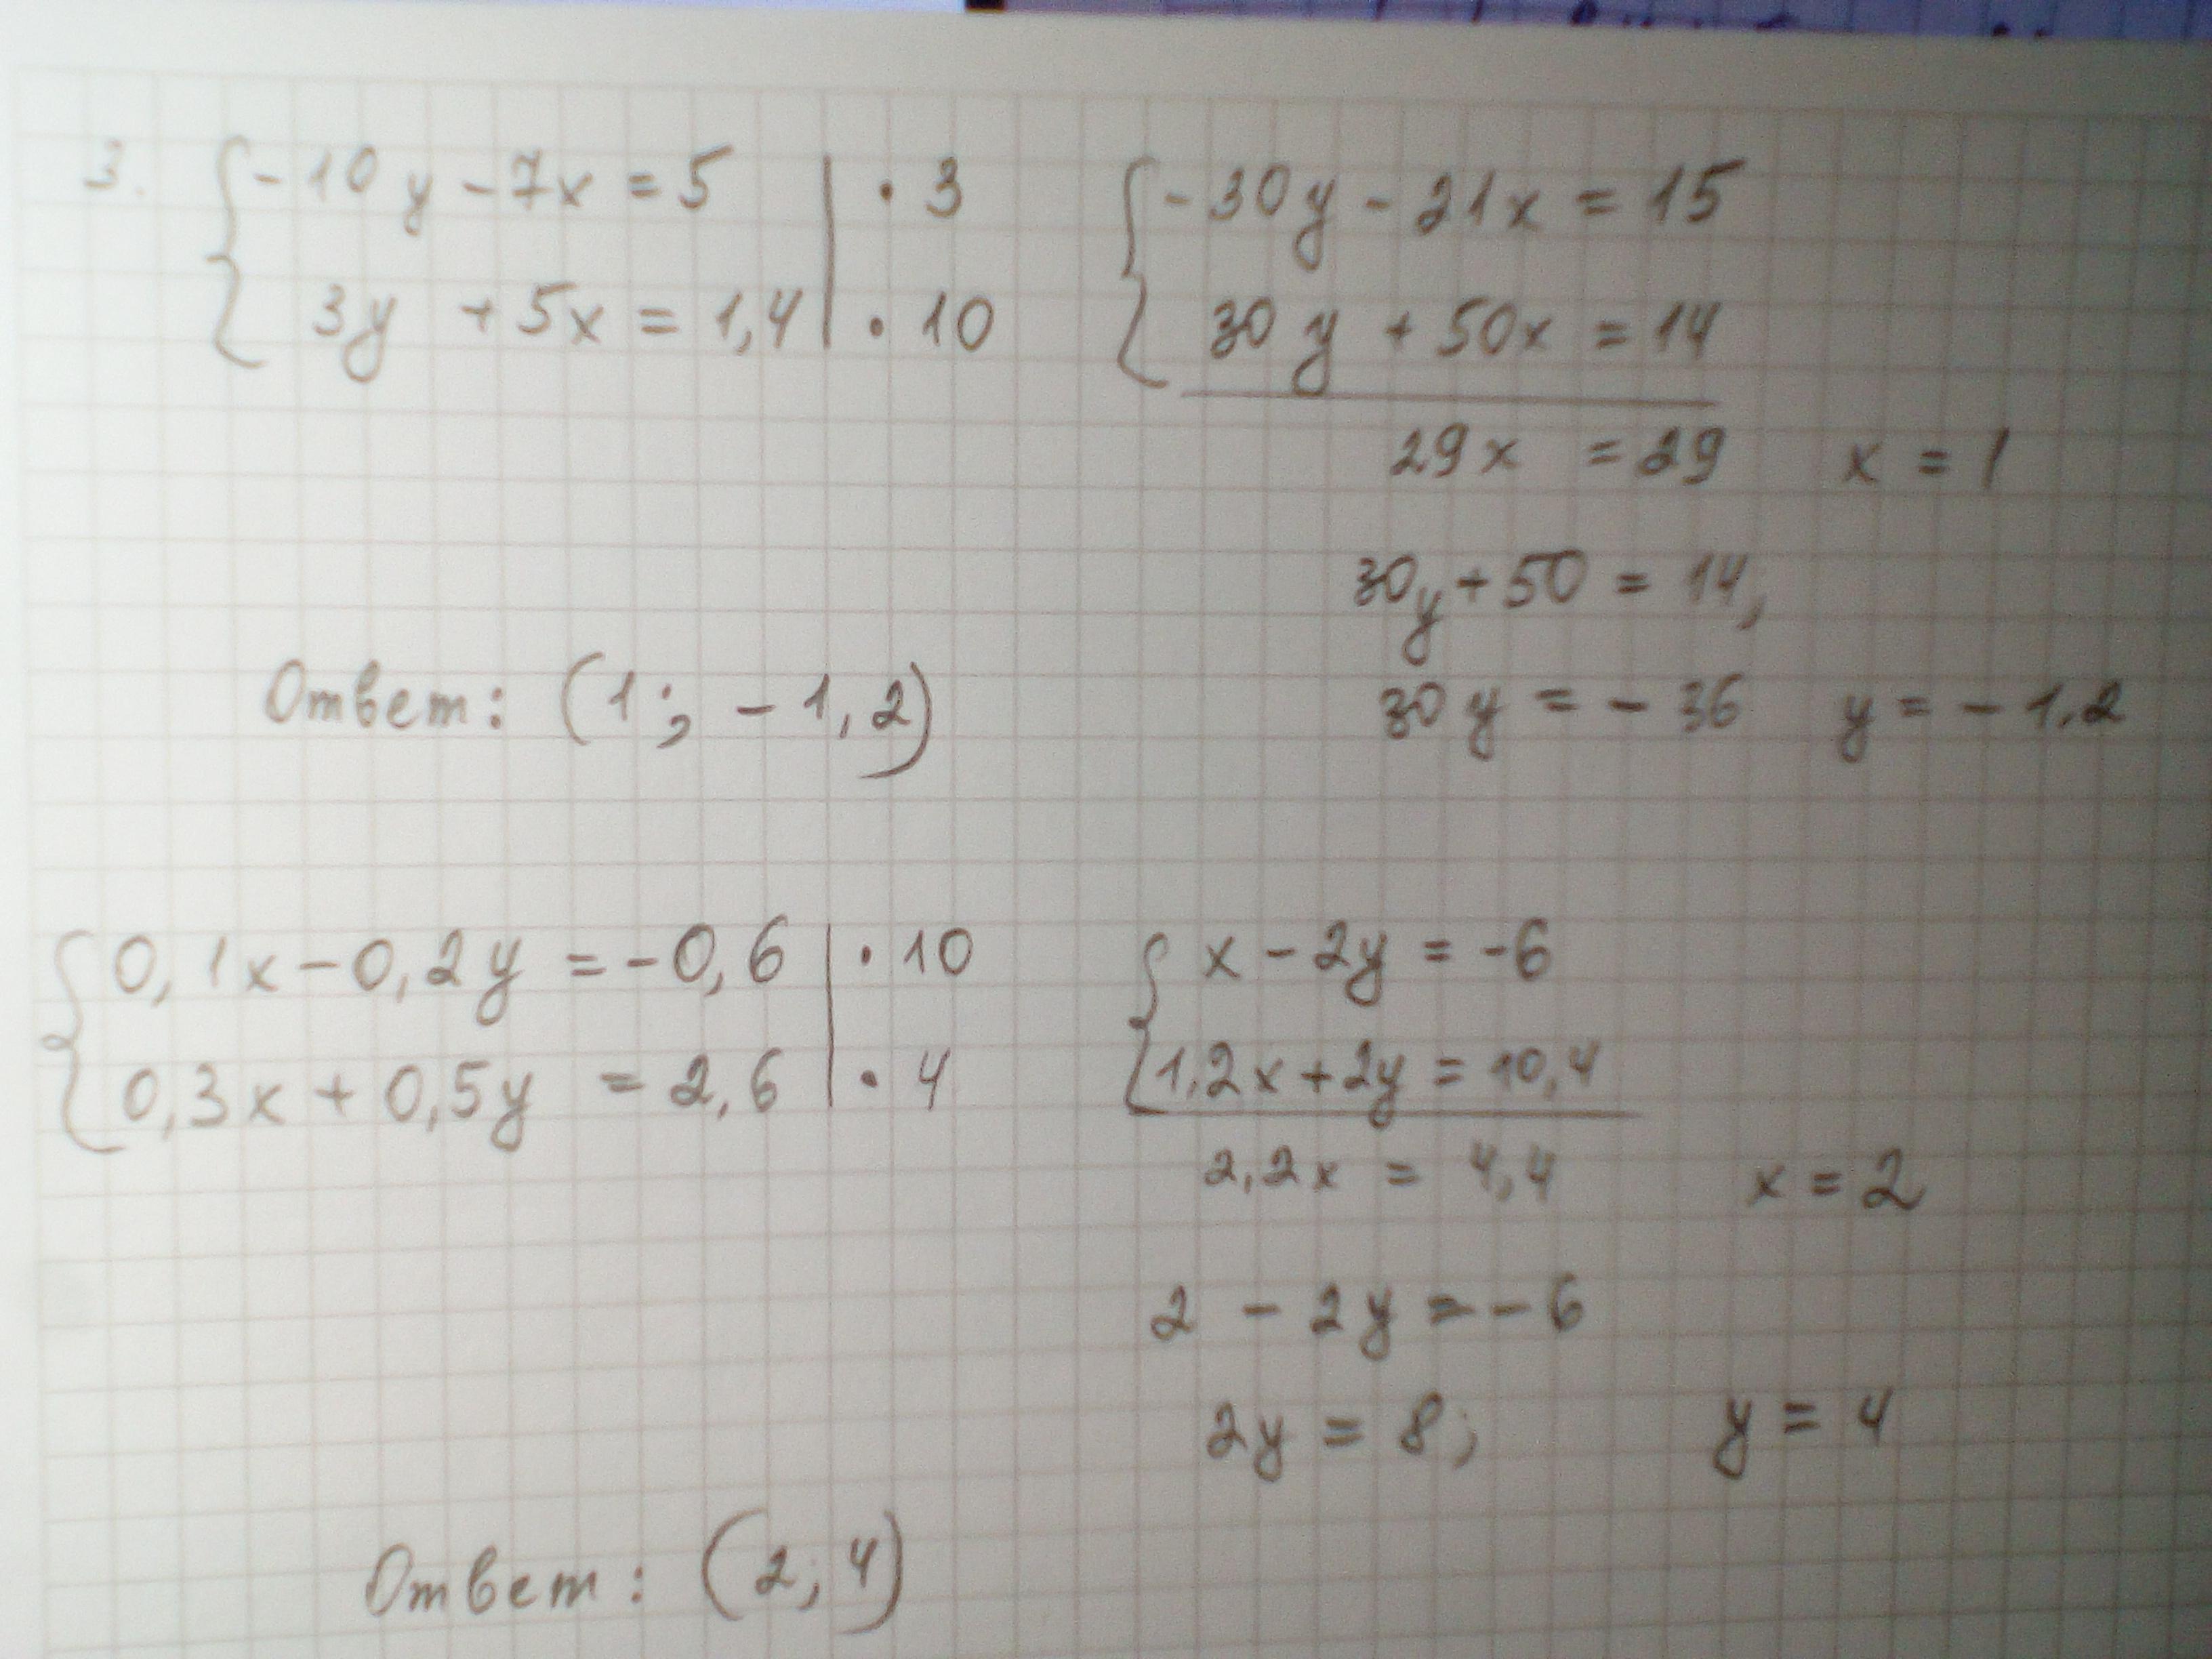 3. { -10y - 7x = 5 | · 3
3y + 5x = 1,4 | · 10
{ -30y - 21x = 15
30y + 50x = 14
29x = 29 x = 1
30y + 50 = 14,
30y = - 36 y = - 1,2
Ответ: (1; - 1,2)
{ 0,1x - 0,2y = -0,6 | · 10
0,3x + 0,5y = 2,6 | · 4
{ x - 2y = -6
1,2x + 2y = 10,4
2,2x = 4,4 x = 2
2 - 2y = - 6
2y = 8; y = 4
Ответ: (2; 4)